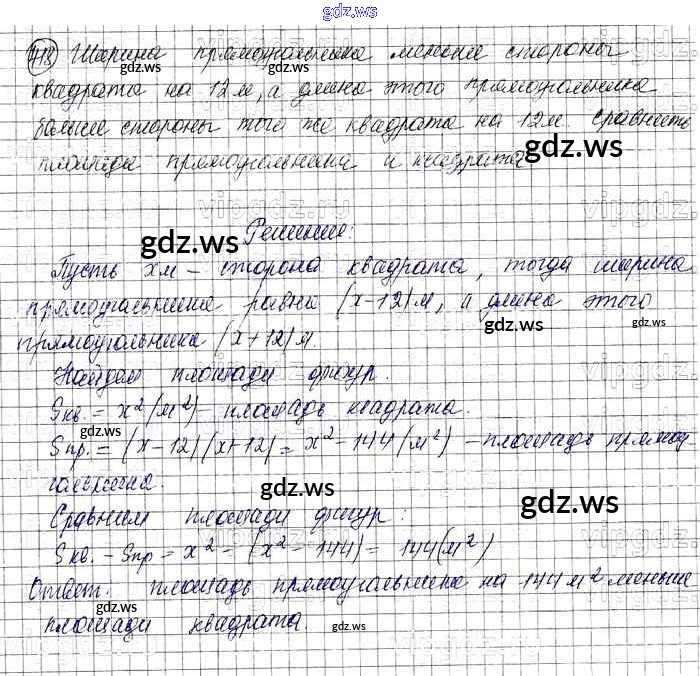 gdz.ws
418) Ширина прямоугольника меньше стороны
gdz.ws
квадрата на 12 м, а длина этого прямоугольника
больше стороны того же квадрата на 12 м сравнить
gdz.ws gdz.ws
площади прямоугольника и квадрата.
vipgdz.ru
Решение:
gdz.ws
Пусть x м - сторона квадрата, тогда ширина
прямоугольника равна (x-12) м, а длина этого
gdz.ws gdz.ws
прямоугольника (x+12) м.
Найдем площади фигур.
gdz.ws
Sкв. = x² (м²) - площадь квадрата.
gdz.ws
Sпр. = (x-12)(x+12) = x² - 144 (м²) - площадь прямоу
гольника.
gdz.ws gdz.ws
Сравним площади фигур:
Sкв. - Sпр = x² - (x² - 144) = 144 (м²)
Ответ: площадь прямоугольника на 144 м² меньше
gdz.ws
площади квадрата.
gdz.ws